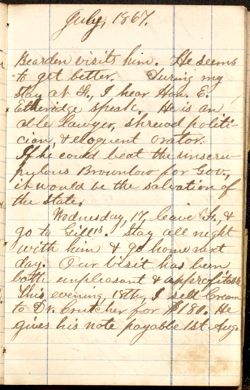 July, 1867.
Bearden visits him. He seems
to get better. During my
stay at Th, I hear Hon. E.
Etheridge speak, He is an
able lawyer, shrewd politi-
cian, & eloquent orator.
If he could beat the unscru-
pulous Brownlow for Gov,
it would be the salvation of
the State.
Wednesday, 17, leave Th, &
go to Gills. Stay all night
with him & go home next
day. Our visit has been
both unpleasant & unprofitable
This evening 18th, I sell
to Dr. Crutcher for $180. He
gives his note payable 1st Aug.